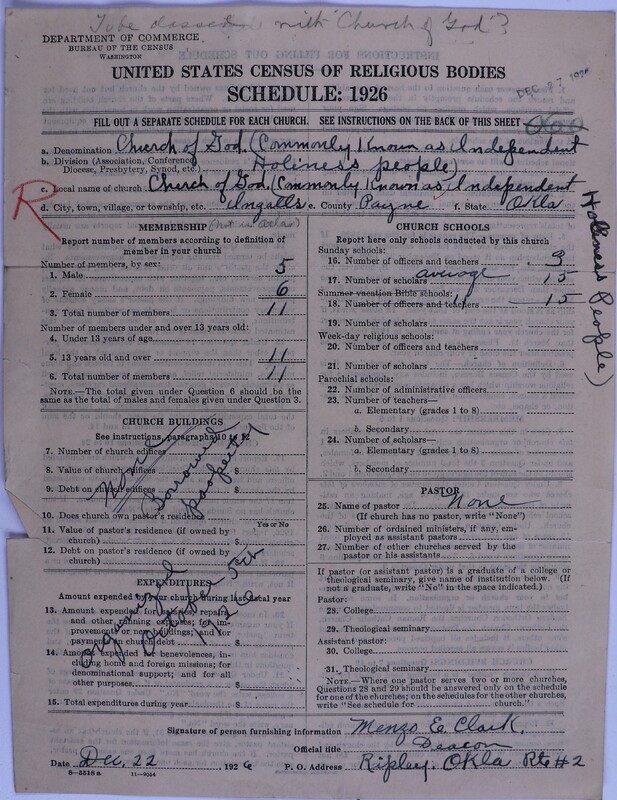 To be classed with "Church of God"?
DEPARTMENT OF COMMERCE
BUREAU OF THE CENSUS
WASHINGTON
UNITED STATES CENSUS OF RELIGIOUS BODIES
SCHEDULE: 1926
DEC 27 1926
FILL OUT A SEPARATE SCHEDULE FOR EACH CHURCH. SEE INSTRUCTIONS ON THE BACK OF THIS SHEET
a. Denomination Church of God. (Commonly Known as Independent
b. Division (Association, Conference, Diocese, Presbytery, Synod, etc.) Holiness people)
c. Local name of church Church of God. (Commonly Known as Independent
Holiness People)
d. City, town, village, or township, etc. Ingalls e. County Payne f. State Okla
R
(not in Atlas)
MEMBERSHIP
Report number of members according to definition of
member in your church
Number of members, by sex:
1. Male 5
2. Female 6
3. Total number of members 11
Number of members under and over 13 years old:
4. Under 13 years of age
5. 13 years old and over 11
6. Total number of members 11
NOTE.—The total given under Question 6 should be
same as the total of males and females given under Question 3.
CHURCH BUILDINGS
See instructions, paragraphs 10
7. Number of church edifices
8. Value of church edifices $
9. Debt on church edifices $
None
Borrowed
property
10. Does church own pastor's residence
Yes or No
11. Value of pastor's residence (if owned by
church) $
12. Debt on pastor's residence (if owned by
church) $
EXPENDITURES
Amount expended by your church during last fiscal year
13. Amount expended for repairs
and other running expenses; for im-
provements or new buildings; and for
payments on church debt $
14. Amount expended for benevolences, in-
cluding home and foreign missions; for
denominational support; and for all
other purposes $
15. Total expenditures during year $
Organized
October 5th
1926
CHURCH SCHOOLS
Report here only schools conducted by this church
Sunday schools:
16. Number of officers and teachers 3
17. Number of scholars average 15
Summer vacation Bible schools:
18. Number of officers and teachers 15
19. Number of scholars
Week-day religious schools:
20. Number of officers and teachers
21. Number of scholars
Parochial schools:
22. Number of administrative officers
23. Number of teachers—
a. Elementary (grades 1 to 8)
b. Secondary
24. Number of scholars—
a. Elementary (grades 1 to 8)
b. Secondary
PASTOR
25. Name of pastor None
(If church has no pastor, write "None")
26. Number of ordained ministers, if any, em-
ployed as assistant pastors
27. Number of other churches served by the
pastor or his assistants
If pastor (or assistant pastor) is a graduate of a college or
theological seminary, give name of institution below. (If
not a graduate, write "No" in the space indicated.)
Pastor:
28. College
29. Theological seminary
Assistant pastor:
30. College
31. Theological seminary
NOTE.—Where one pastor serves two or more churches,
Questions 28 and 29 should be answered only on the schedule
for one of the churches; on the schedules for the other churches,
write "See schedule for church."
Signature of person furnishing information Menzo E. Clark.
Official title Deacon
Date Dec. 22 1926 P. O. Address Ripley, Okla Rte #2
8—5518a 11—9024